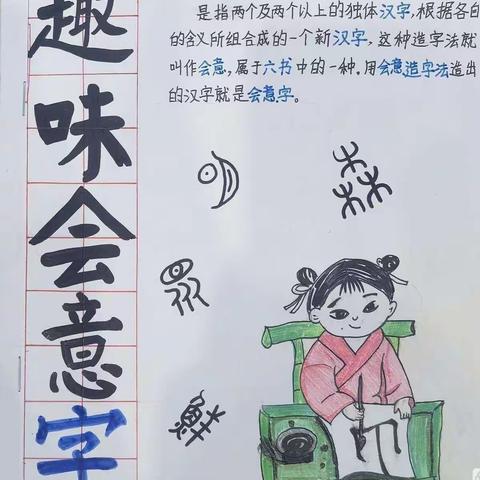 趣味会意字
是指两个及两个以上的独体汉字,根据各自
的含义所组合成的一个新汉字,这种造字法就
叫作会意,属于六书中的一种.用会意造字法造出
的汉字就是会意字。